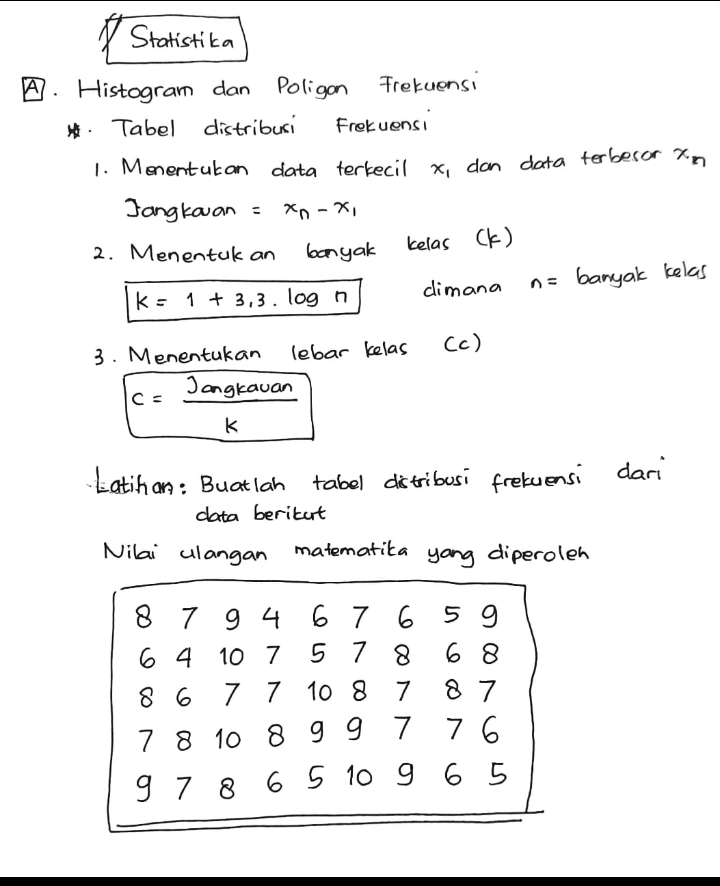 Statistika
A. Histogram dan Poligon Frekuensi
*. Tabel distribusi Frekuensi
1. Menentukan data terkecil x₁ dan data terbesar xₙ
Jangkauan = xₙ - x₁
2. Menentukan banyak kelas (k)
k = 1 + 3,3 . log n dimana n = banyak kelas
3. Menentukan lebar kelas (c)
c = Jangkauan
k
Latihan: Buatlah tabel distribusi frekuensi dari
data berikut
Nilai ulangan matematika yang diperoleh
8 7 9 4 6 7 6 5 9
6 4 10 7 5 7 8 6 8
8 6 7 7 10 8 7 8 7
7 8 10 8 9 9 7 7 6
9 7 8 6 5 10 9 6 5